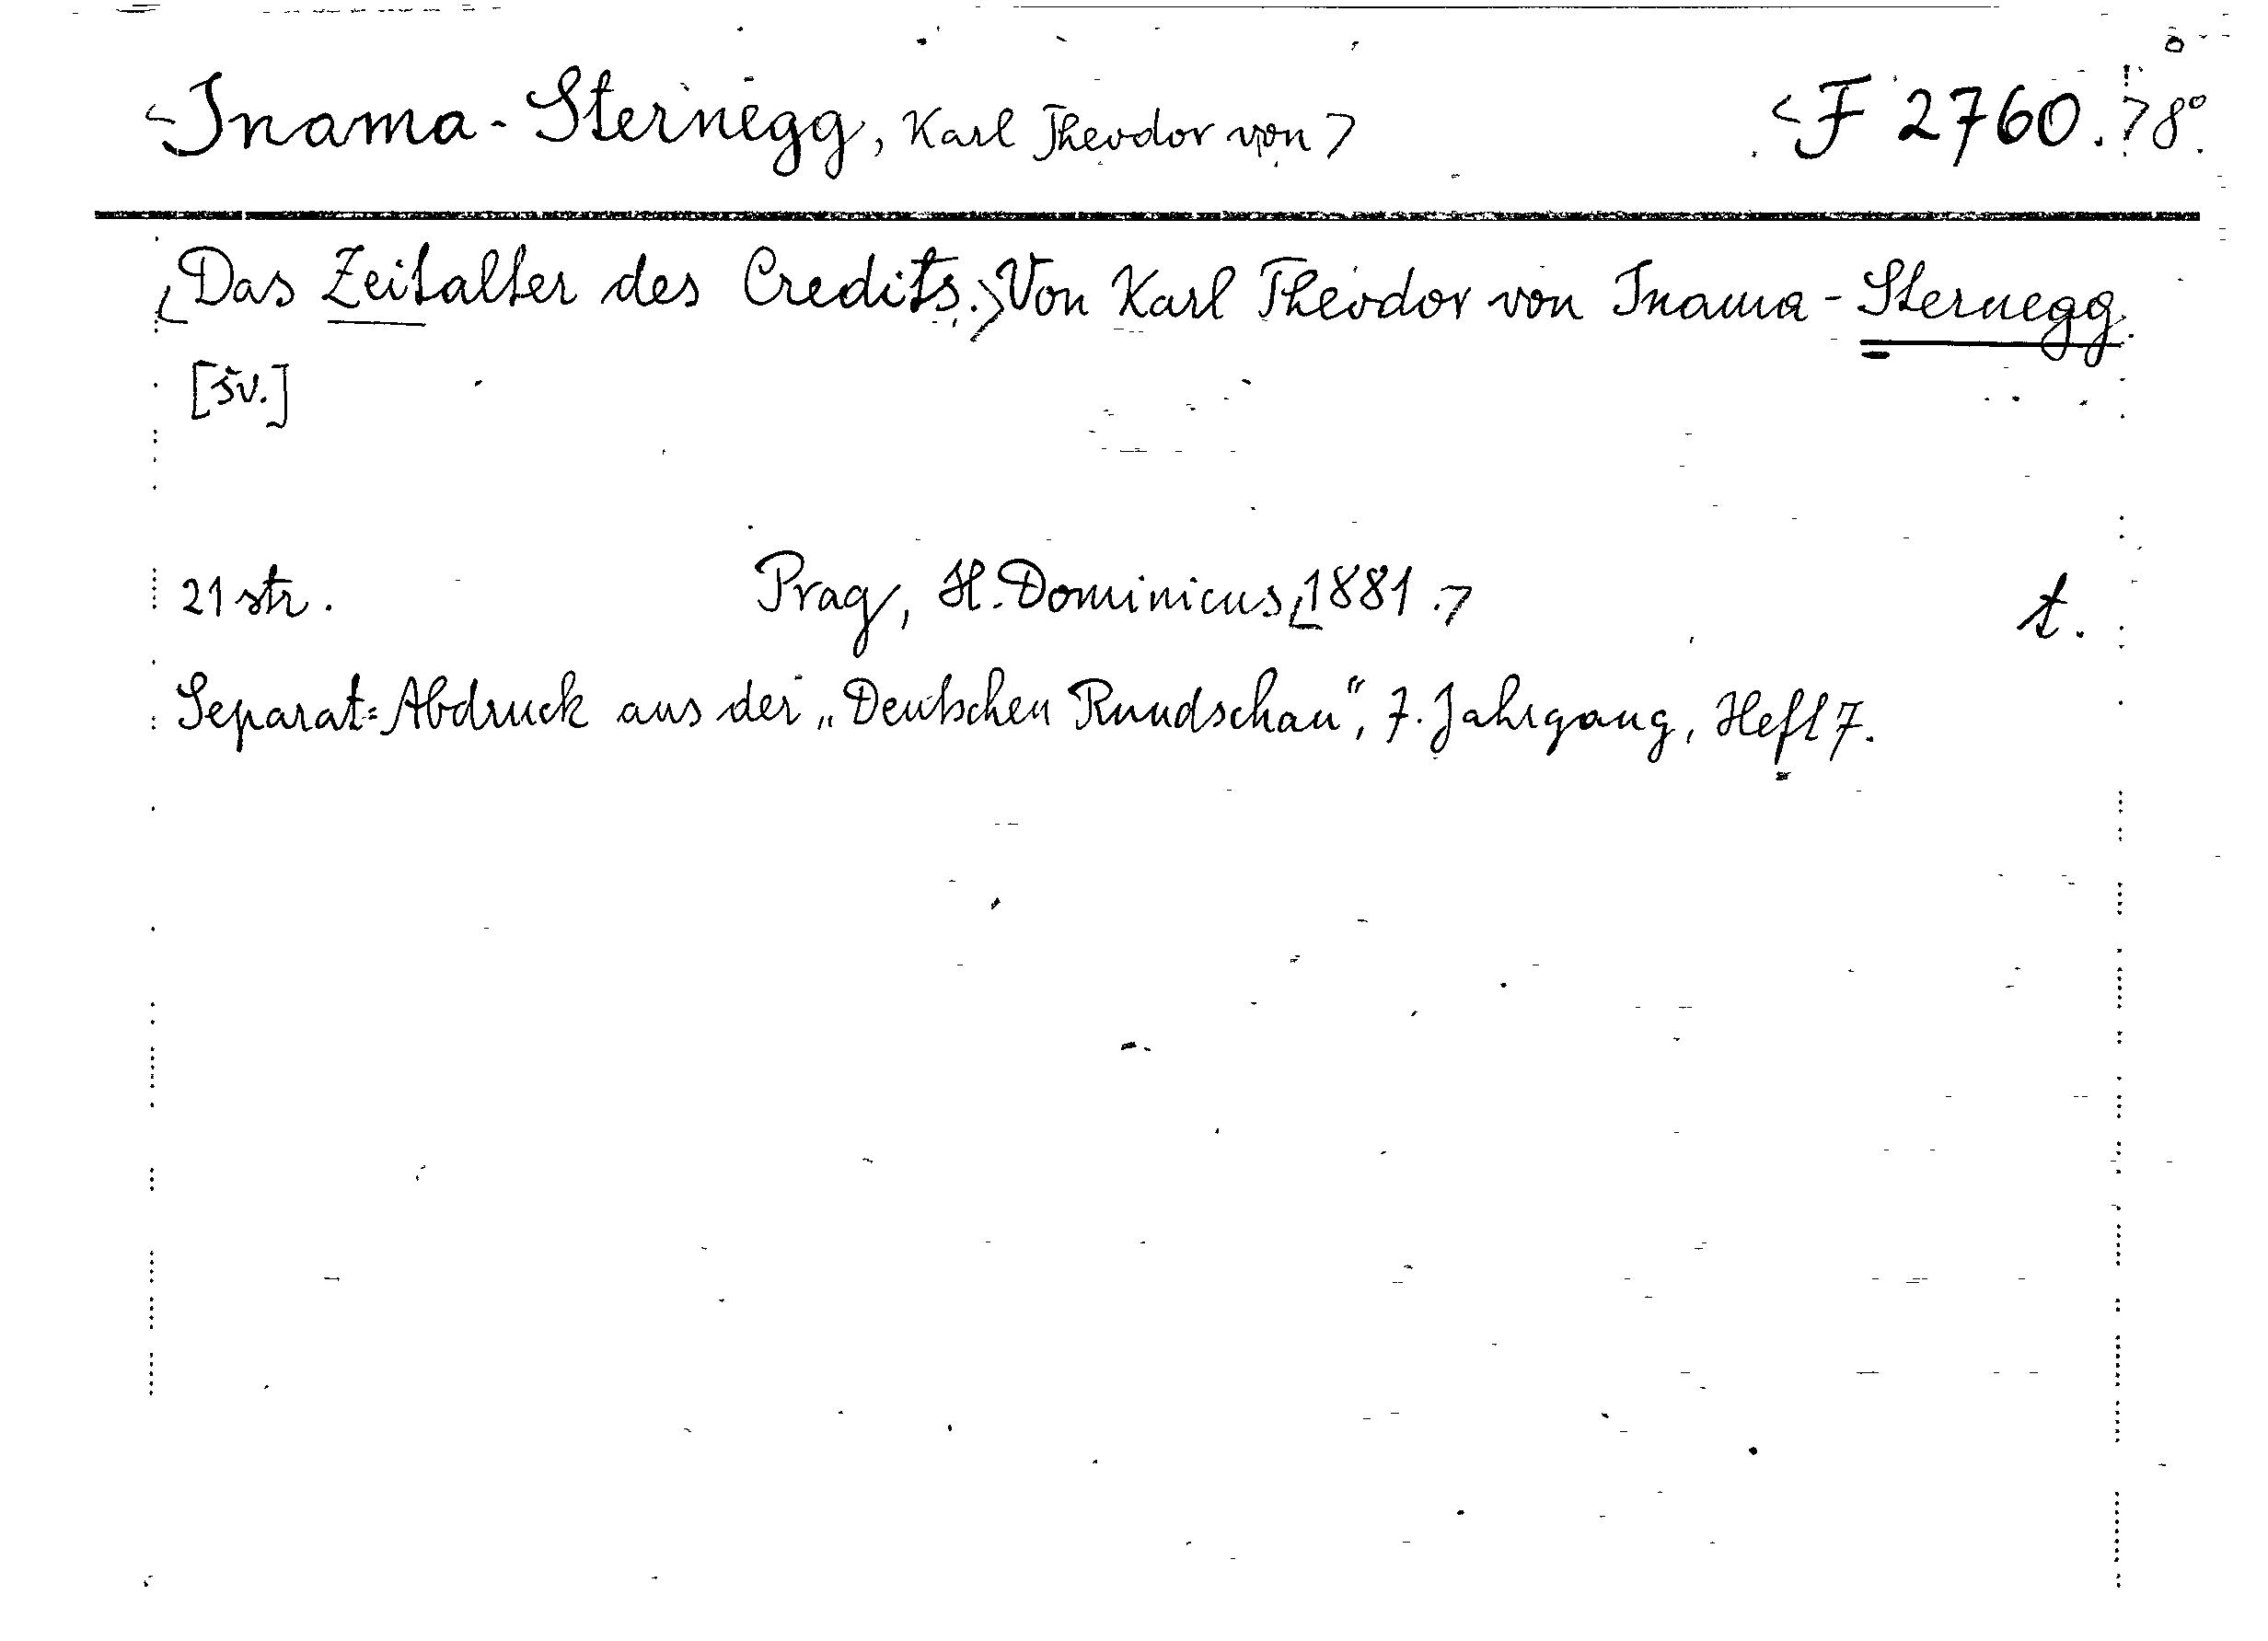 <Inama-Sternegg, Karl Theodor von> <F 2760.> 8°
<Das Zeitalter des Credits.> Von Karl Theodor von Inama-Sternegg.
[šv.]
21 str. Prag, H. Dominicus, <1881.> t.
Separat=Abdruck aus der „Deutschen Rundschau“, 7. Jahrgang, Heft 7.